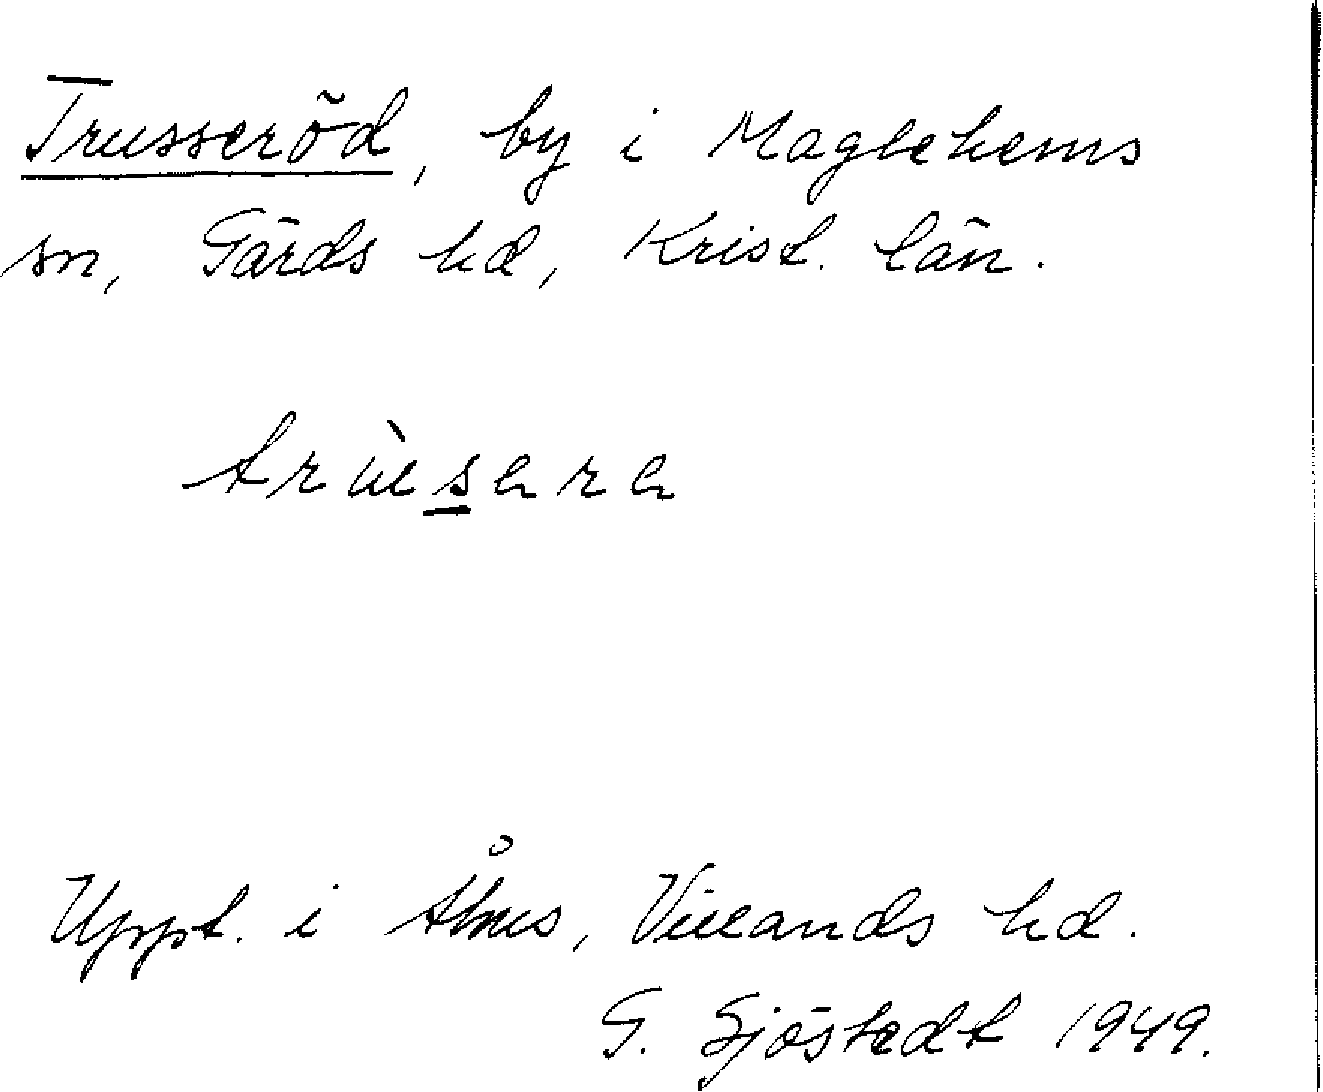 Trusseröd, by i Maglehems
sn, Gärds hd, Krist. län.
Uppt. i Åhus, Villands hd.
G. Sjöstedt 1949.